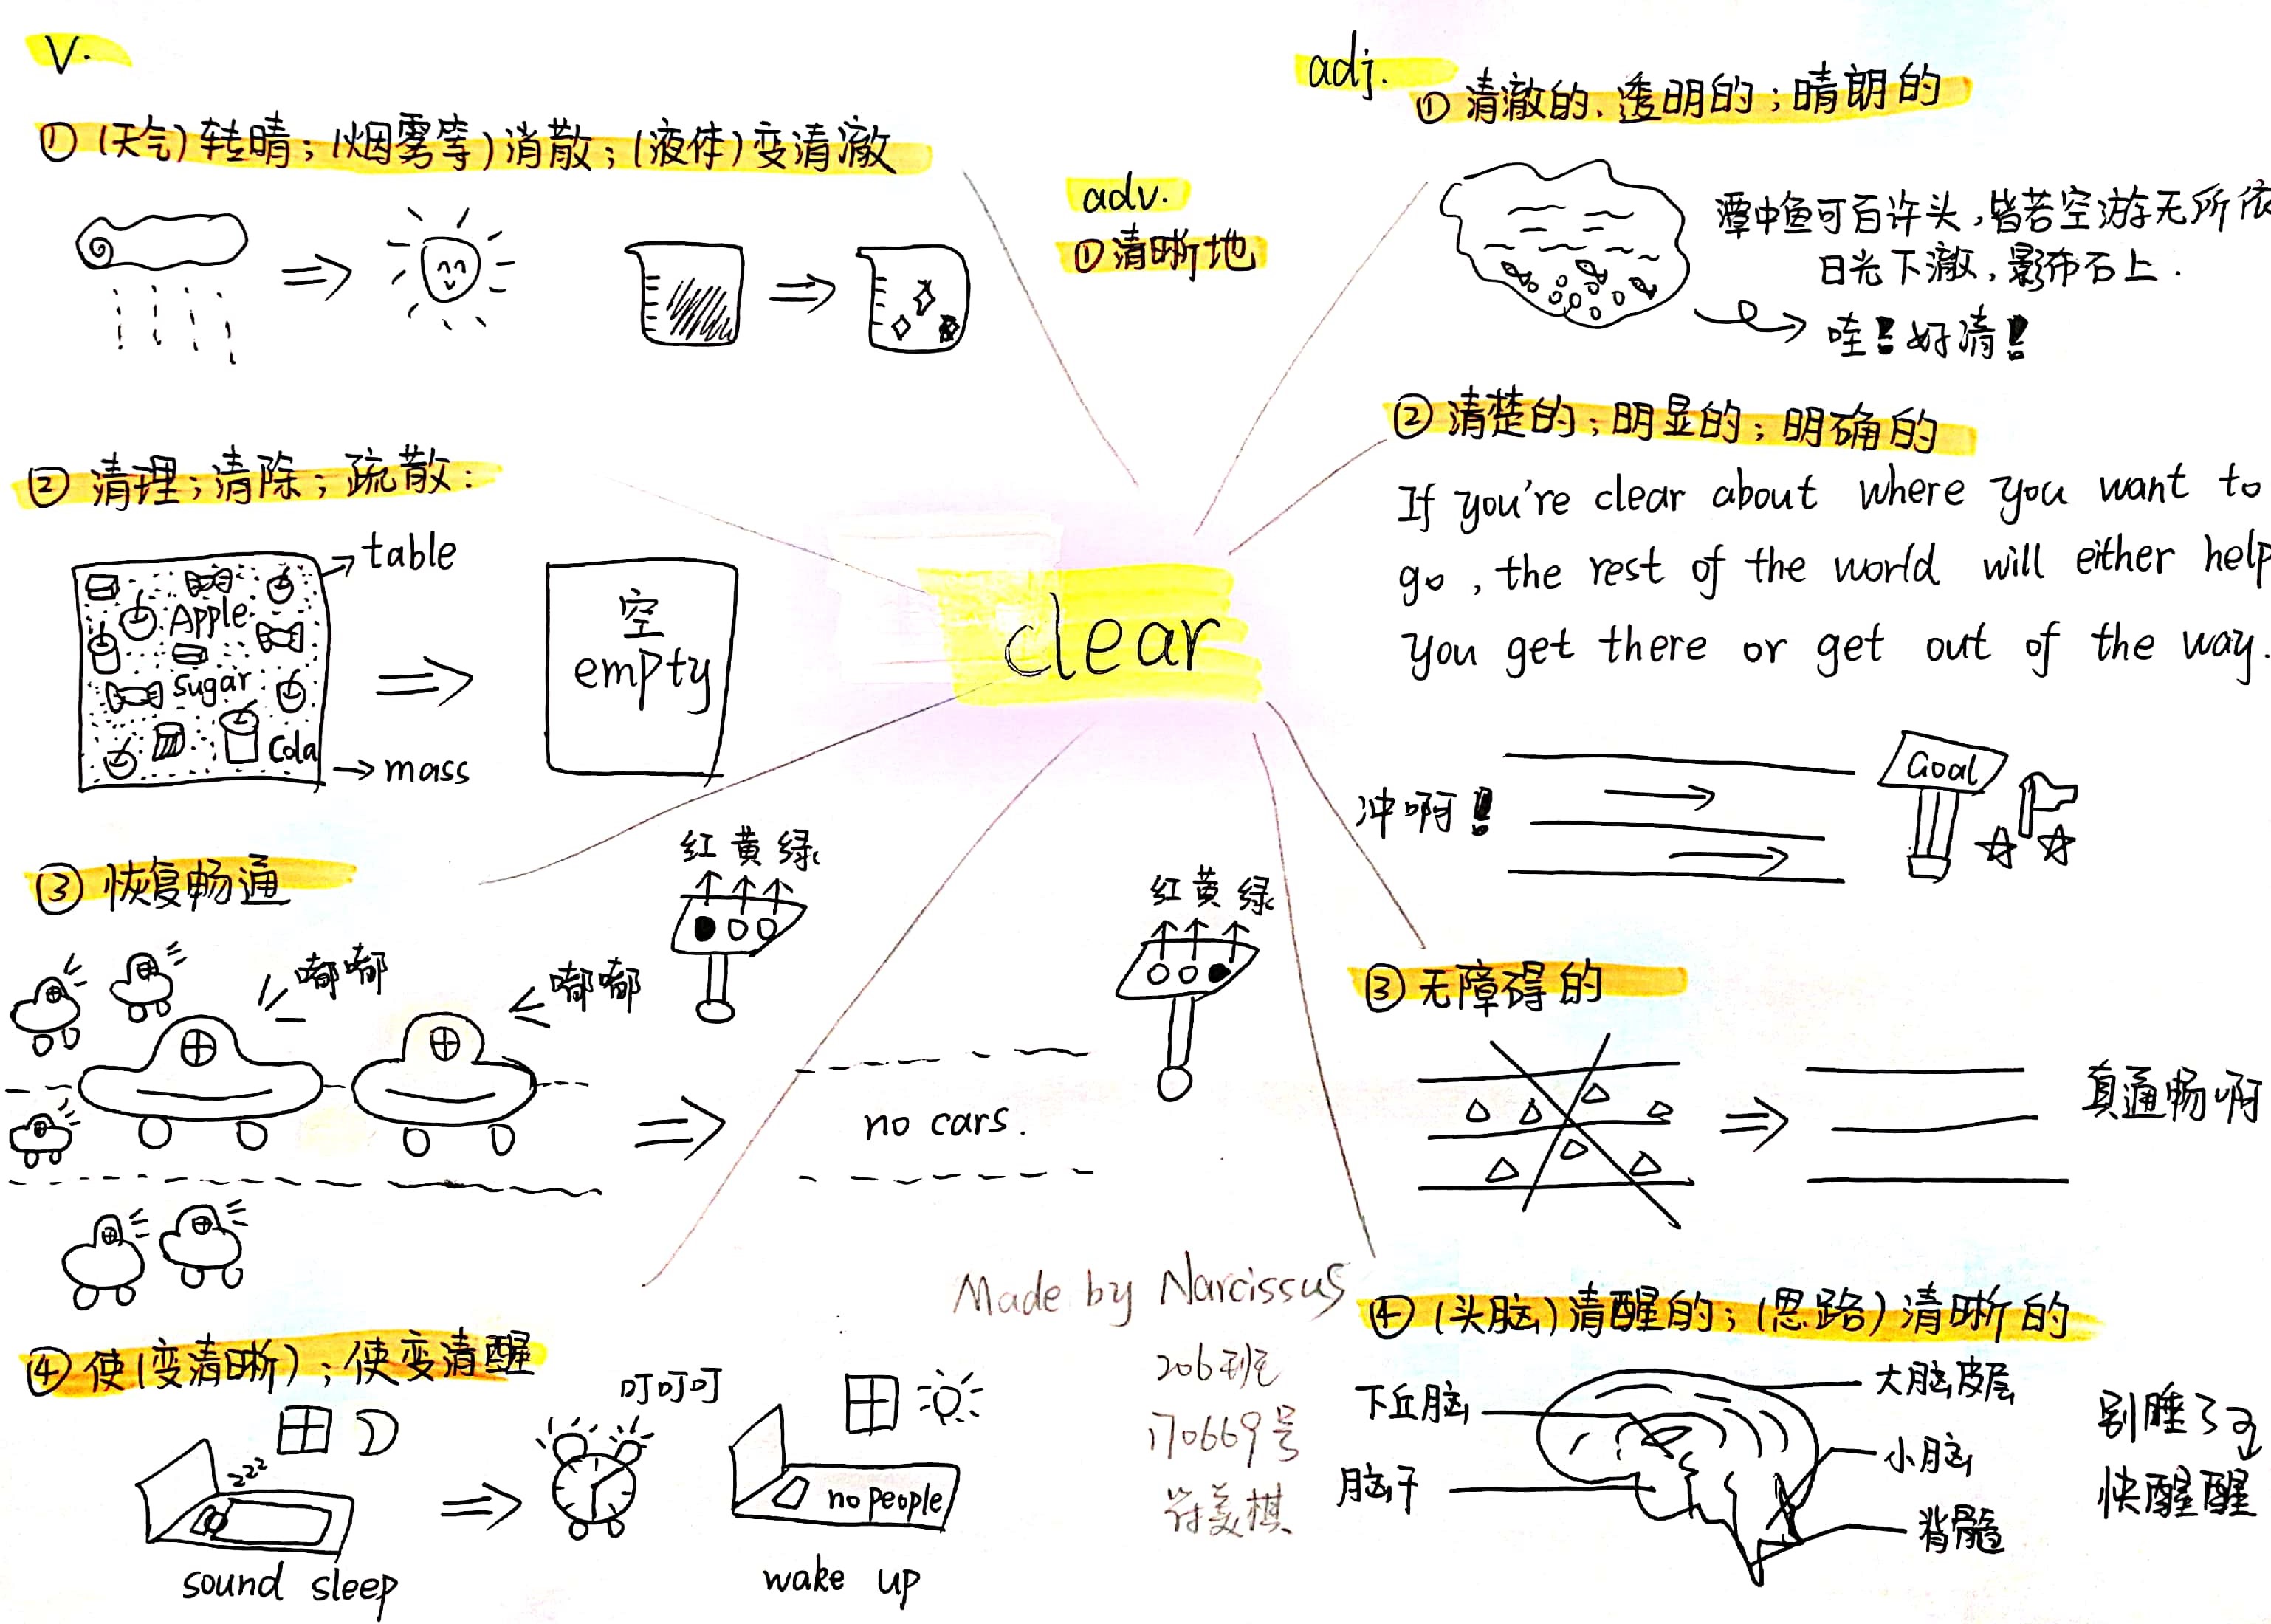 v.
① (天气) 转晴; (烟雾等) 消散; (液体) 变清澈
② 清理; 清除; 疏散:
table
Apple
sugar
Cola
mass
空
empty
③ 恢复畅通
嘟嘟
嘟嘟
红 黄 绿
no cars.
红 黄 绿
④ 使(变清晰); 使变清醒
zzz
叮叮叮
no people
sound sleep
wake up
clear
adv.
① 清晰地
adj.
① 清澈的、透明的; 晴朗的
潭中鱼可百许头,皆若空游无所依
日光下澈,影布石上.
哇!好清!
② 清楚的; 明显的; 明确的
If you're clear about where you want to
go, the rest of the world will either help
you get there or get out of the way.
冲啊!
Goal
③ 无障碍的
真通畅啊
④ (头脑) 清醒的; (思路) 清晰的
下丘脑
脑干
大脑皮层
小脑
背髓
别睡了
快醒醒
Made by Narcissus
206班
170669号
符美棋